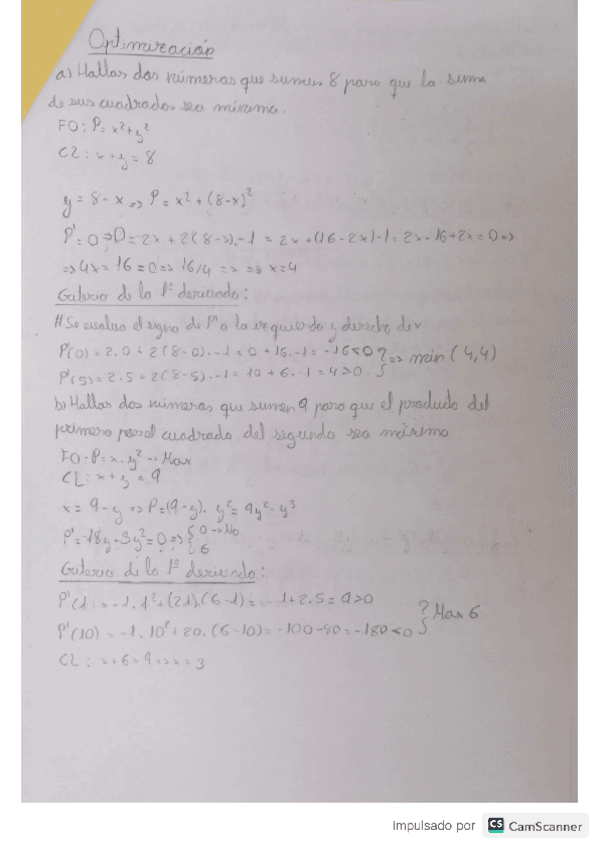 Optimización
a) Hallar dos números que sumen 8 para que la suma
de sus cuadrados sea mínima.
FO: P = x²+y²
CL: x+y = 8
y = 8-x => P = x² + (8-x)²
P' = 0 => 0 = 2x + 2(8-x).-1 = 2x + (16-2x)-1 = 2x-16+2x = 0 =>
=> 4x = 16 = 0 => 16/4 = x => x = 4
Criterio de la 1ª derivada:
P'(0) = 2.0 + 2(8-0).-1 = 0 + 16.-1 = -16<0 } => min (4,4)
P'(5) = 2.5 + 2(8-5).-1 = 10 + 6.-1 = 4>0
b) Hallar dos números que sumen 9 para que el producto del
primero por el cuadrado del segundo sea máximo
FO: P = x.y² -> Max
CL: x+y = 9
x = 9-y => P = (9-y).y² = 9y²-y³
P' = 18y-3y² = 0 => { 0 -> No
6
Criterio de la 1ª derivada:
P'(1) = -1.1² + (21).(6-1) = -1+2.5 = 9>0 } Max 6
P'(10) = -1.10² + 20.(6-10) = -100-80 = -180<0
CL: x+6 = 9 => x = 3
Impulsado por CS CamScanner